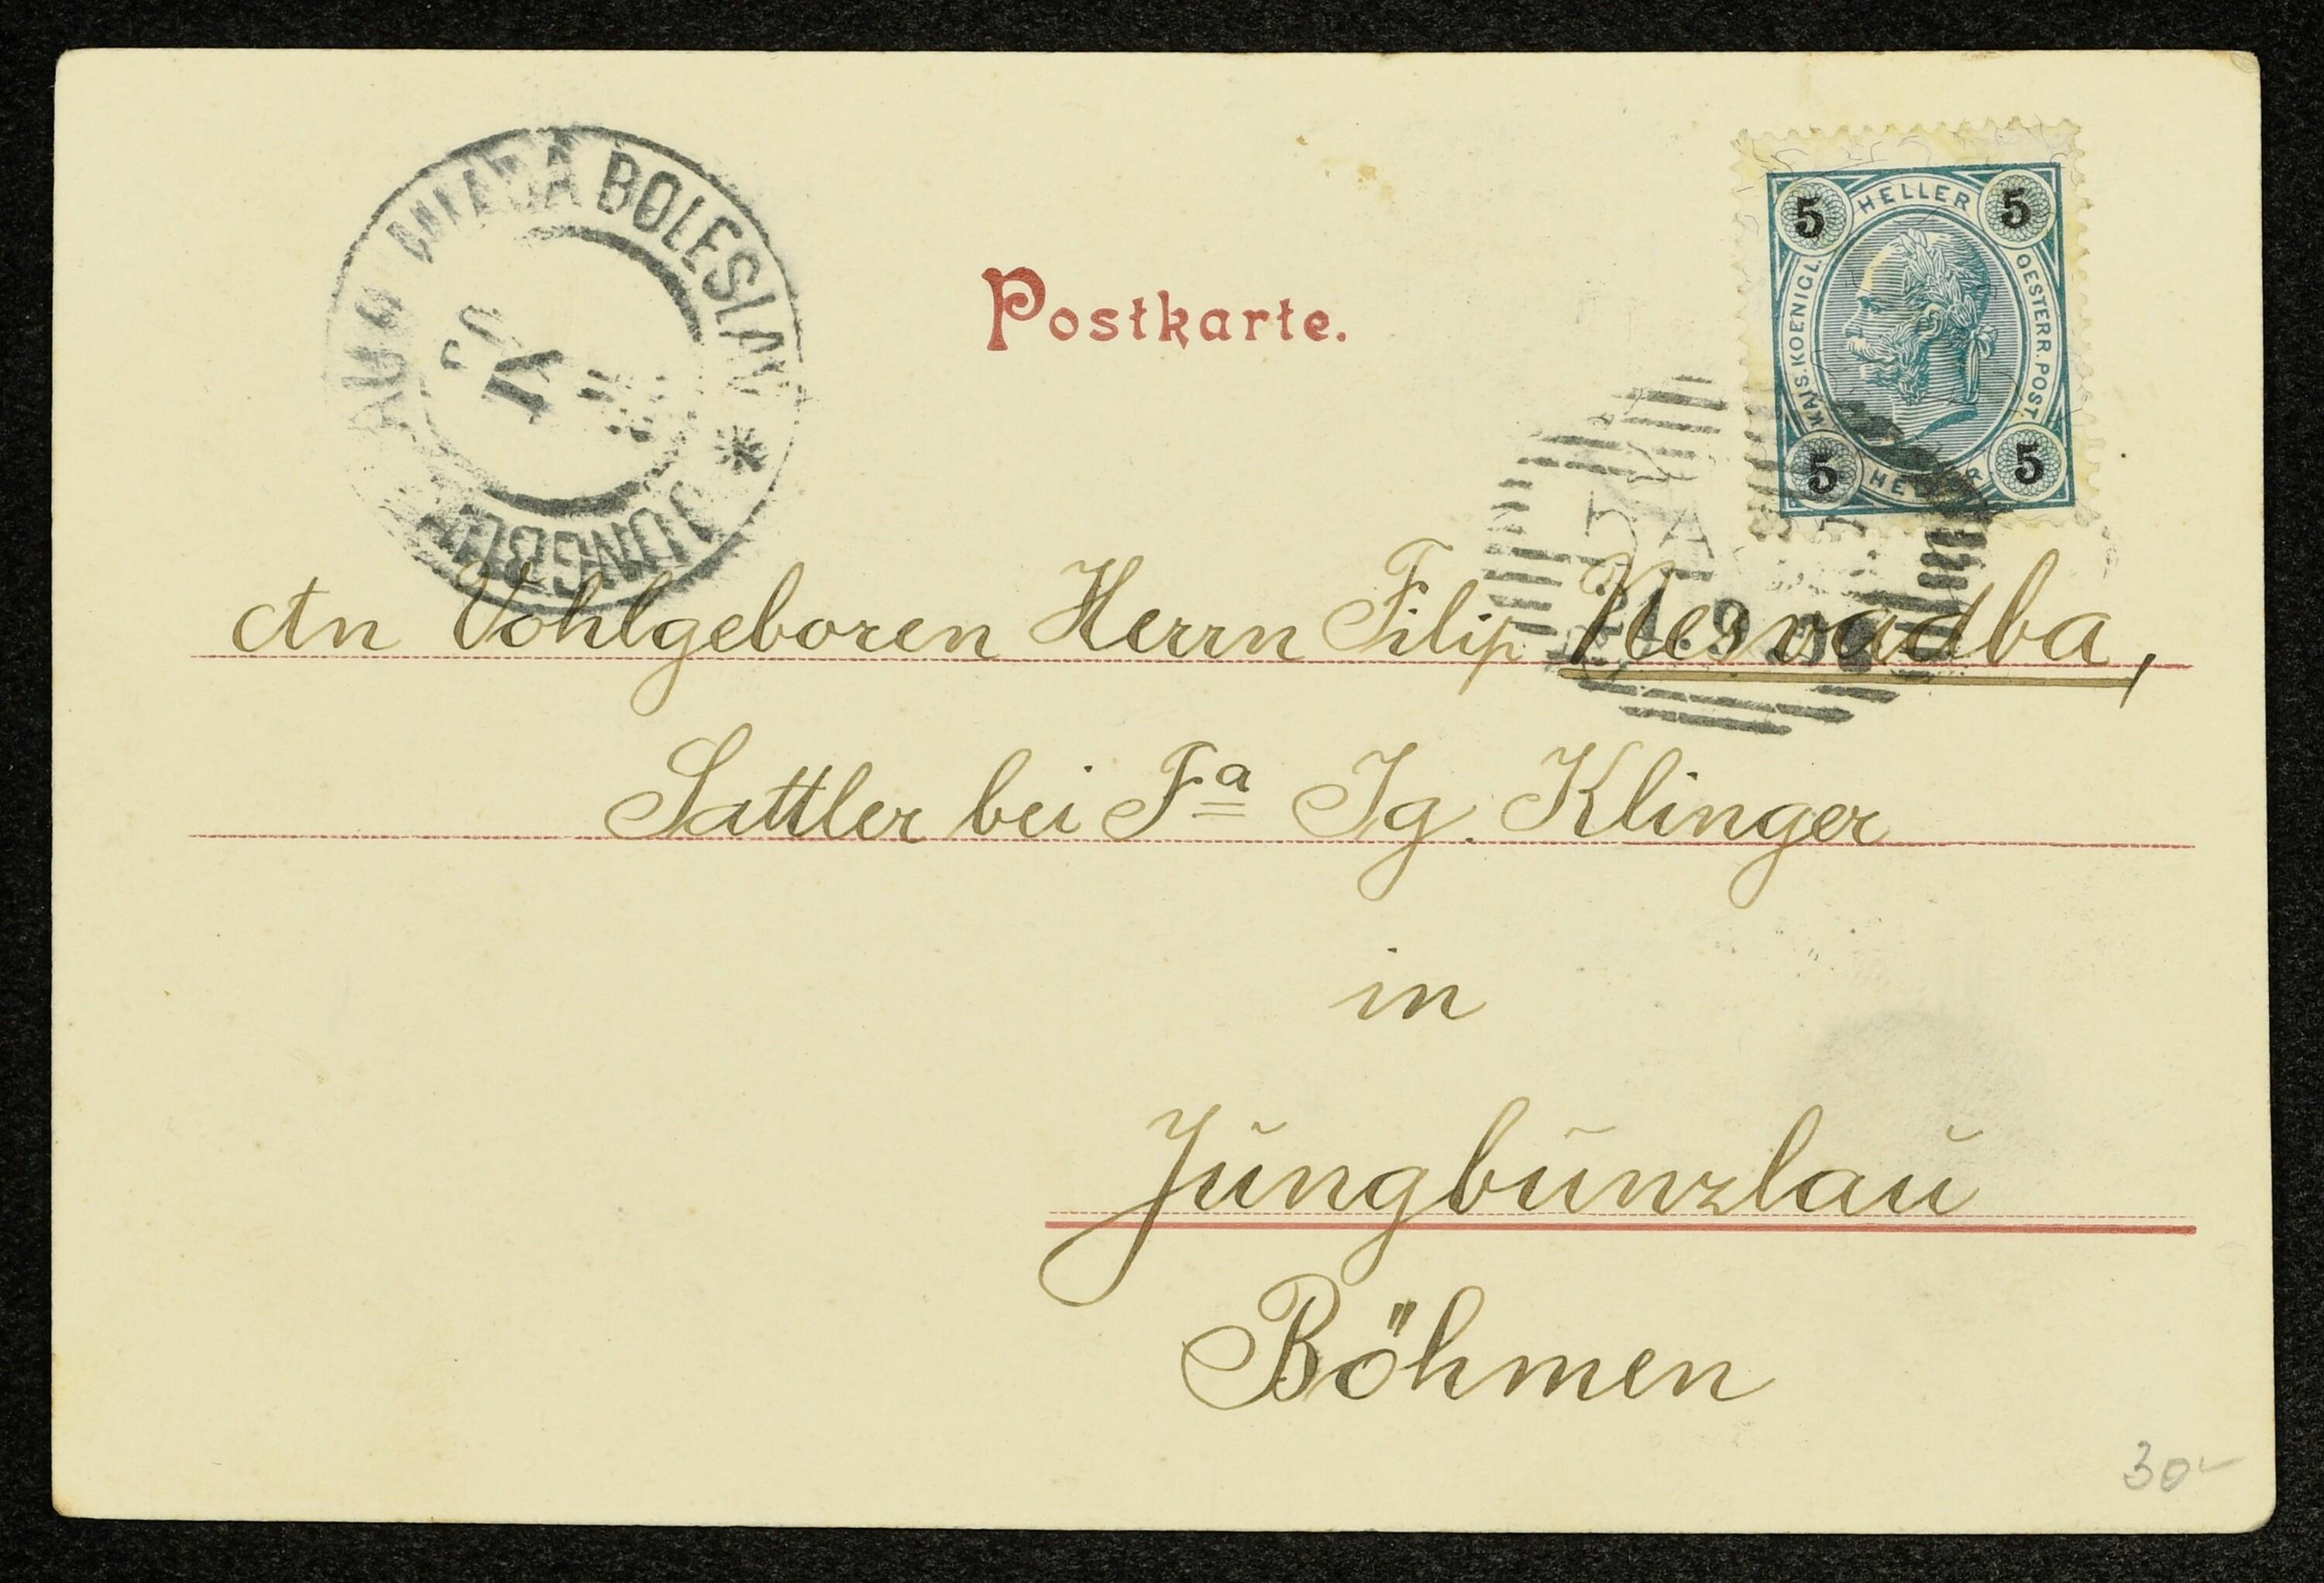 MLADÁ BOLESLAV * JUNGBUNZLAU
Postkarte.
5 HELLER 5
KAIS. KOENIGL. OESTERR. POST.
5 HELLER 5
An Vohlgeboren Herrn Filip Nesvadba,
Sattler bei Fa Ig. Klinger
in
Jungbunzlau
Böhmen
30-